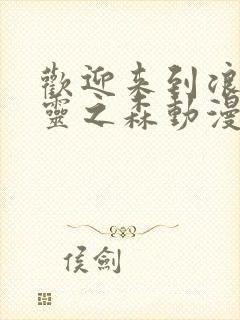 歡迎来到浪
靈之森動漫
侯劍